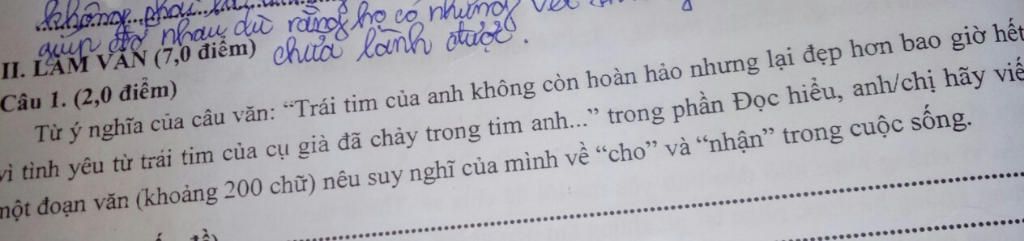 không phải
giúp đỡ nhau, dù rằng họ có những
chưa lành được.
II. LÀM VĂN (7,0 điểm)
Câu 1. (2,0 điểm)
Từ ý nghĩa của câu văn: “Trái tim của anh không còn hoàn hảo nhưng lại đẹp hơn bao giờ hết
vì tình yêu từ trái tim của cụ già đã chảy trong tim anh...” trong phần Đọc hiểu, anh/chị hãy viế
một đoạn văn (khoảng 200 chữ) nêu suy nghĩ của mình về “cho” và “nhận” trong cuộc sống.